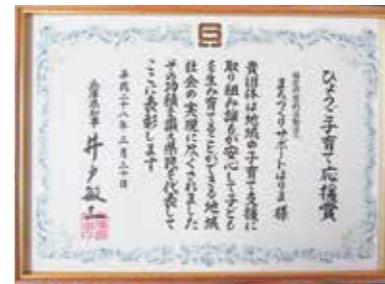 ひょうご子育て応援賞
特定非営利活動法人
まちづくりサポートはりま 様
貴団体は地域の子育て支援に
取り組み誰もが安心して子ども
を生み育てることができる地域
社会の実現に尽くされました
その功績を讃え県民を代表して
ここに表彰します
平成二十八年 三月二十日
兵庫県知事 井戸敏三